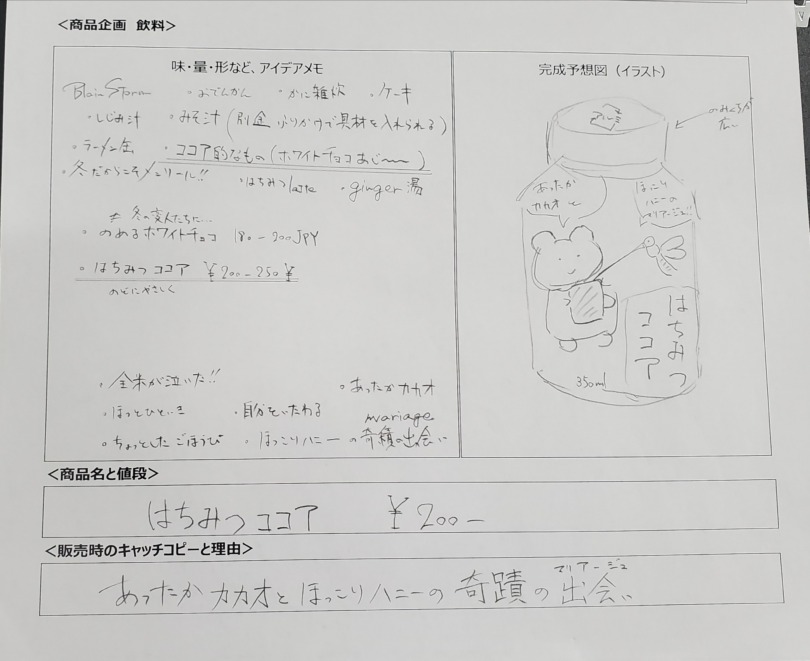 <商品企画 飲料>
味・量・形など、アイデアメモ
Blain Storm ・おでんかん ・かに雑炊 ・ケーキ
・しじみ汁 ・みそ汁(別途 ふりかけで具材を入れられる)
・ラーメン缶 ・ココア的なもの(ホワイトチョコあじ〜〜)
・冬だからこそメンソール!!
・はちみつlatte ・ginger湯
≠ 冬の変人たちに…
・のめるホワイトチョコ 180-200JPY
・はちみつココア ¥200-250¥
のどにやさしく
・全米が泣いた!! ・あったかカカオ
・ほっとひといき ・自分をいたわる
mariage
・ちょっとしたごほうび ・ほっこりハニーの奇積の出会い
完成予想図(イラスト)
のみくちが
広い
アルミ
あったか
カカオと
ほっこり
ハニーの
マリアージュ!!
はちみつ
ココア
350ml
<商品名と値段>
はちみつココア ¥200-
<販売時のキャッチコピーと理由>
マリアージュ
あったかカカオとほっこりハニーの奇蹟の出会い